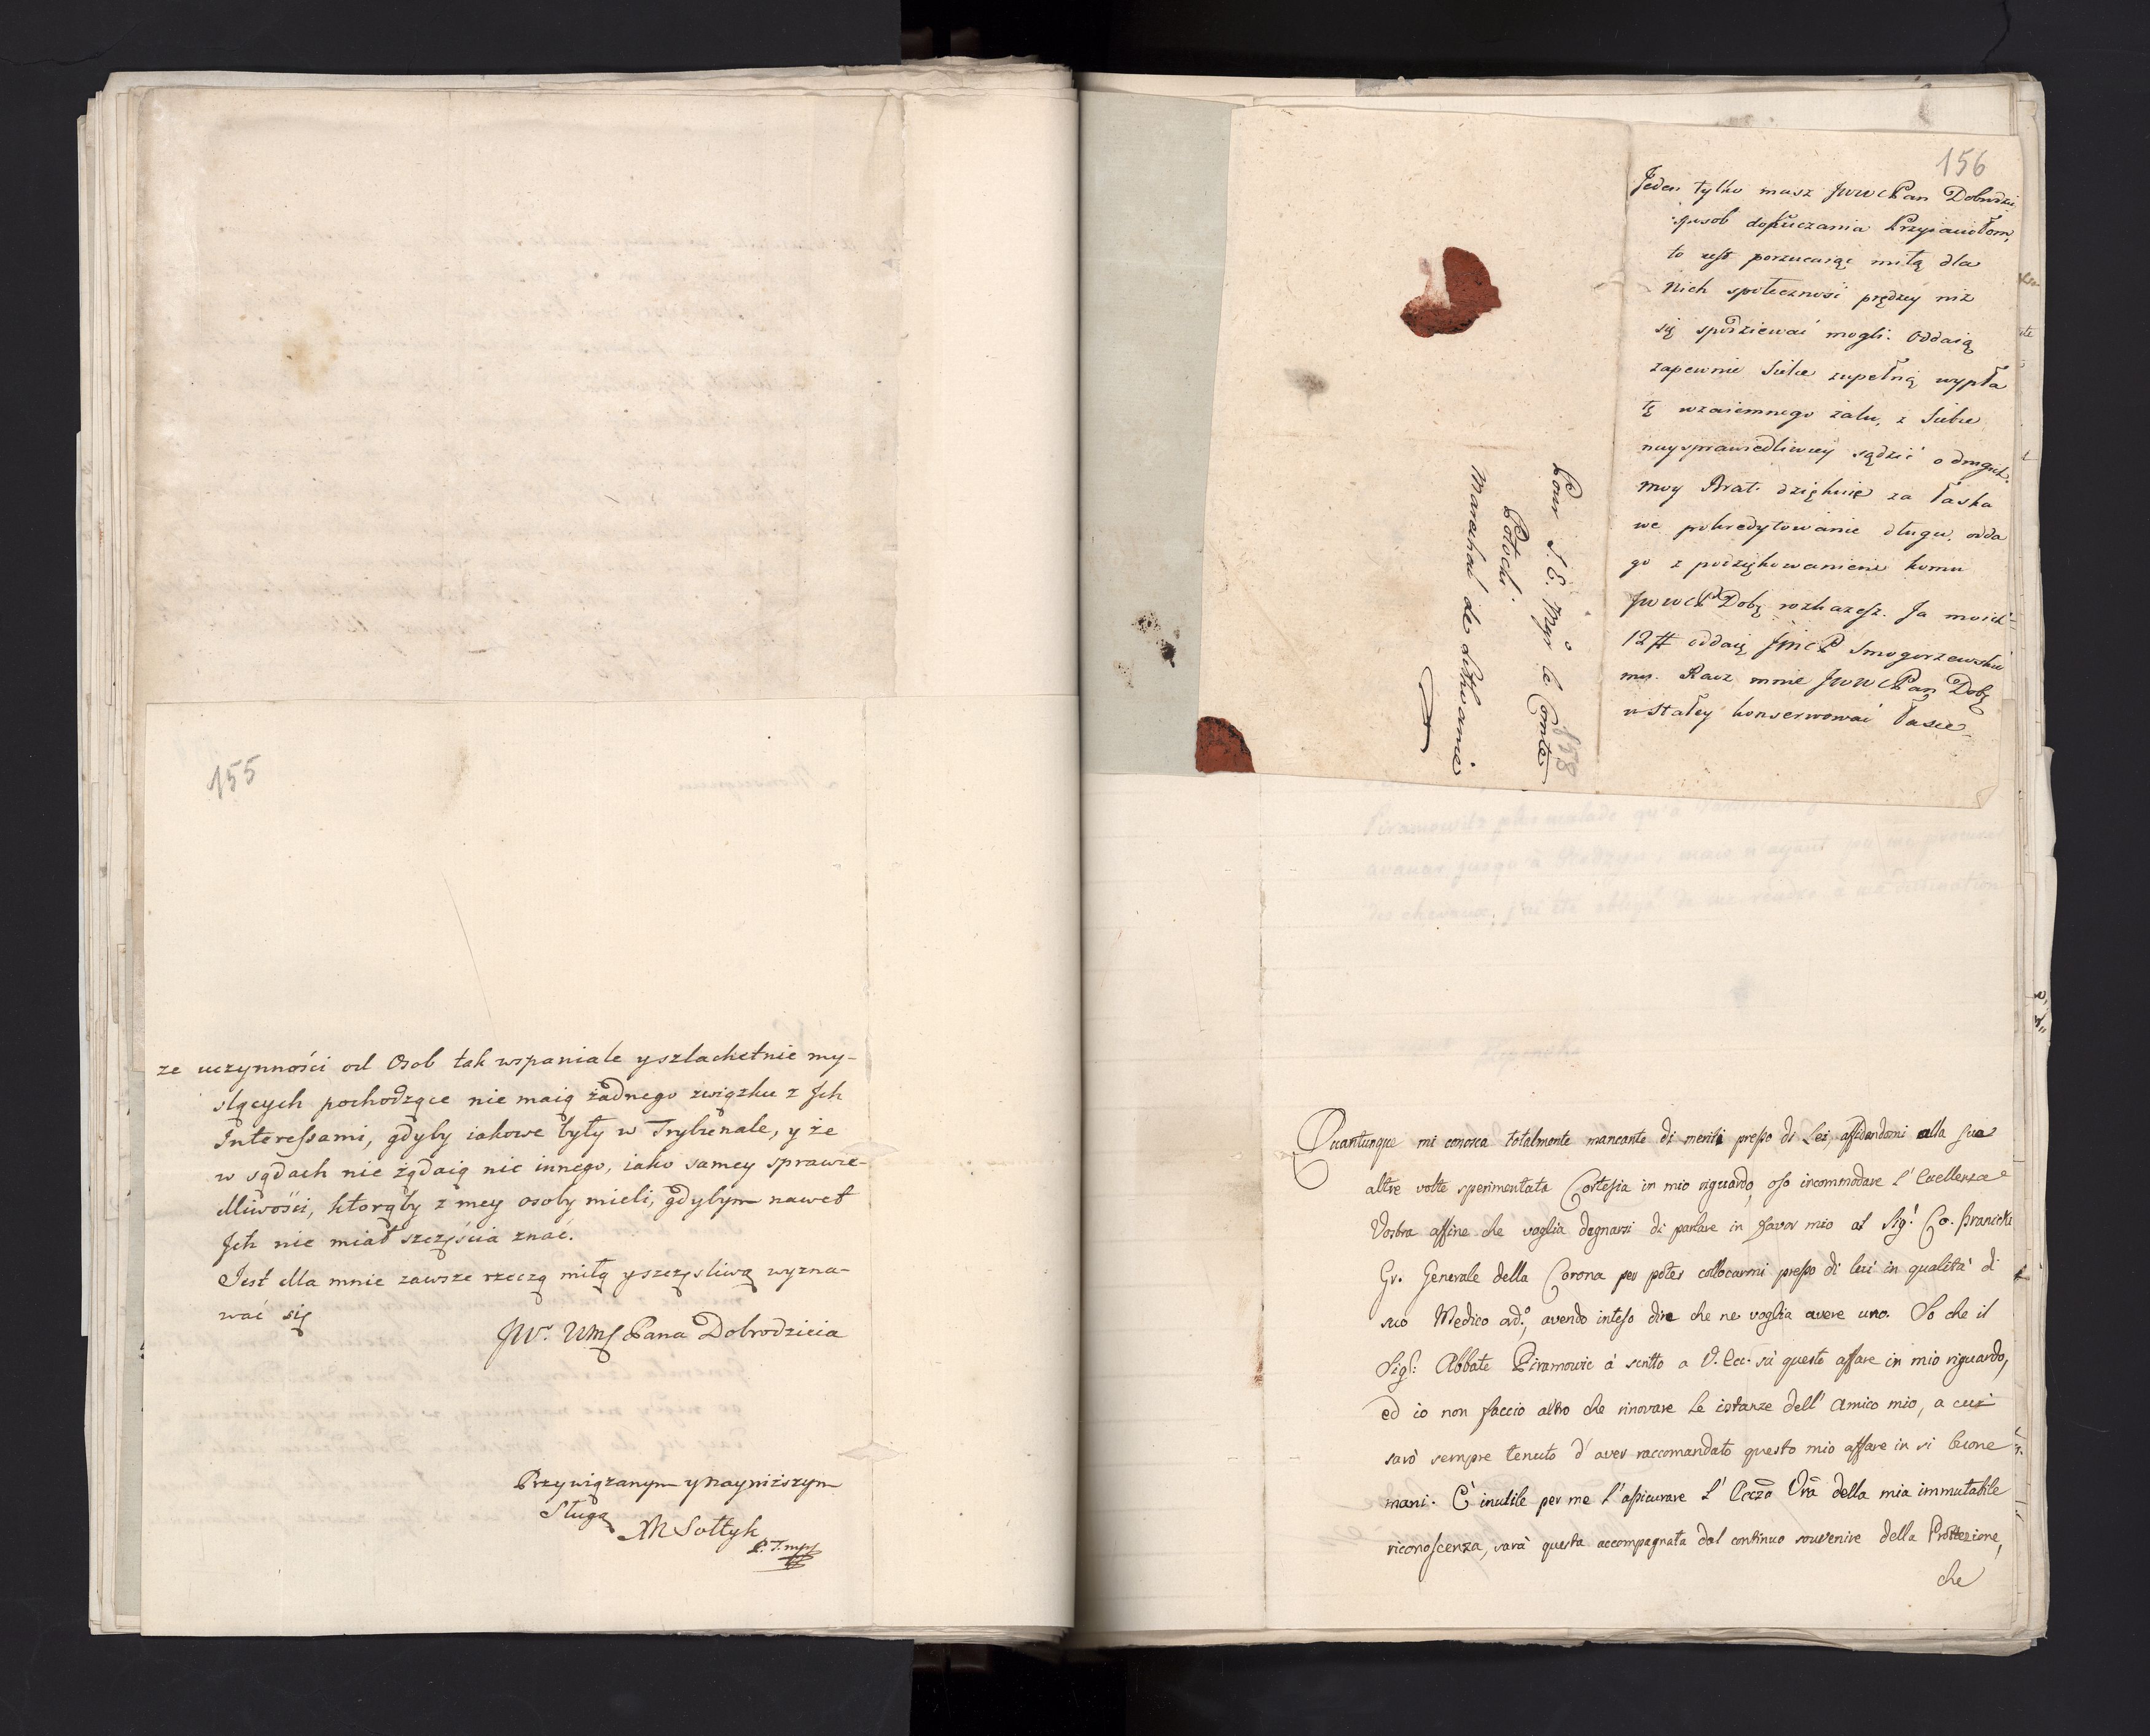 155
ze uczynności od Osob tak wspaniale y szlachetnie my-
slących pochodzące nie maią żadnego związku z Jch
Interessami, gdyby iakowe były w Trybunale, y że
w sądach nie żądaią nic innego, iako samey sprawie-
dliwości, ktorąby z mey osoby mieli, gdybym nawet
Jch nie miał szczęścia znać.
Jest dla mnie zawsze rzeczą miłą y szczęsliwą wyzna-
wać się
JW. WMę Pana Dobrodzieia
Przywiązanym y naynizszym
Sługą
M Sołtyk
P. T. mpp
156
Jeden tylko masz JWWCPan Dobrodzi
sposob dokuczania Przyiaciołom,
to iest porzucaiąc miłą dla
Nich społecznosć prędzey niz
się spodziewać mogli. Oddaią
zapewnie Sobie zupełną wypła
tę wzaiemnego zalu, z Siebie
nuysprawiedliwiey sądzić o drugich.
Moy Brat dziękuie za łaska
we pokredytowanie długu, odda
go z podziękowaniem komu
JWWCP Dobę rozkazesz. Ja moich
12 # oddaię JMCP Smogorzewskie
mu. Racz mnie JWWCPan Dobę
w stałey konserwować łasce
Pour S. E. Mgr le Comte
Potocki
Marechal de Lithuanie
858
Piramowitz plus malade qu'à
avancer jusqu'à Radzyn, mais n'ayant pu me procurer
des chevaux, j'ai été obligé de me rendre à ma destination
Quantunque mi conosca totalmente mancante di meriti presso di Lei, affidandomi alla sua
altre volte sperimentata Cortesia in mio riguardo, oso incommodare l'Eccellenza
Vostra affine che voglia degnarsi di parlare in favor mio al Sig.r Co. Branicki
Gr. Generale della Corona per poter collocarmi presso di lui in qualità di
suo Medico ord.o, avendo inteso dire che ne voglia avere uno. So che il
Sig.r Abbate Piramowic à scritto a V. Ecc. sù questo affare in mio riguardo,
ed io non faccio altro che rinovare le istanze dell' Amico mio, a cui
sarò sempre tenuto d'aver raccomandato questo mio affare in si buone
mani. E' inutile per me l'assicurare l' Eccza Vra della mia immutabile
riconoscenza, sarà questa accompagnata dal continuo souvenire della Protezione,
che